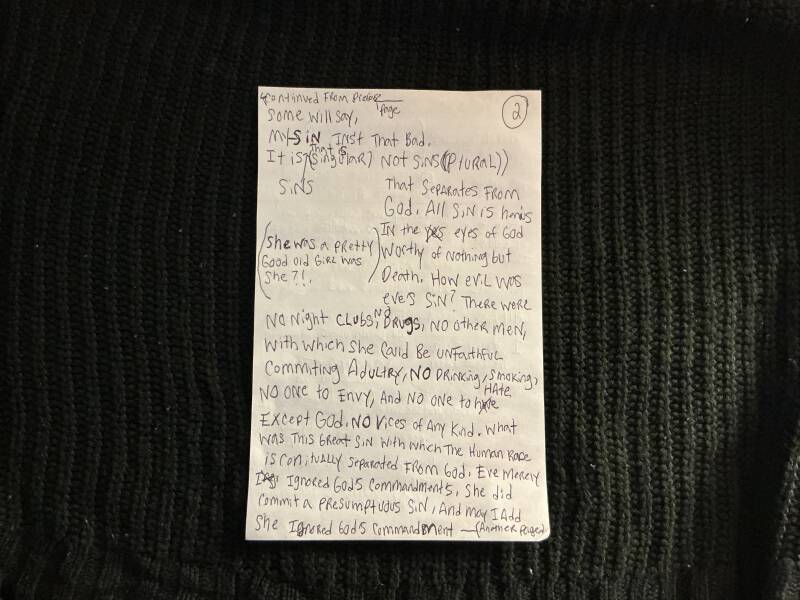 continued From
page
2
Some will say,
My SiN INst That Bad.
It is (Singular) Not SiNS (PlurAL))
That is
SiNS
That SepARAtes From
God. All SiN is
IN the eyes of God
(she was a pretty
Good old GiRL was
She?!.)
Worthy of Nothing but
Death. How eviL was
eve's SiN? There were
No Night CLUBS, NO DRugs, No other MeN,
with which She Could Be UNFAithFuL
Commiting ADultRy, NO DRiNKiNg, Smoking,
NO ONe to ENvy, And NO one to HAte
Except GoD. NO Vices of Any Kind. What
was This GReat SiN with which The HumAN Race
is separated From God. Eve Merely
Ignored Gods CommandmentS. She did
Commit a PResumptuous SiN, And may I Add
She Ignored GodS CommandMeNt — (ANotheR